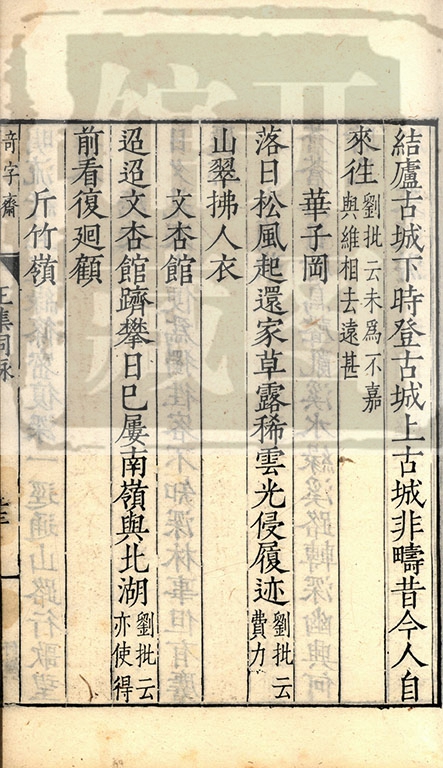 結廬古城下時登古城上古城非疇昔今人自
來徃劉批云未為不嘉
與維相去遠甚
華子岡
落日松風起還家草露稀雲光侵履迹
山翠拂人衣劉批云
費力
文杏館
迢迢文杏館躋攀日已屢南嶺與北湖
前看復廻顧劉批云
亦使得
斤竹嶺
奇字齋
王集同詠